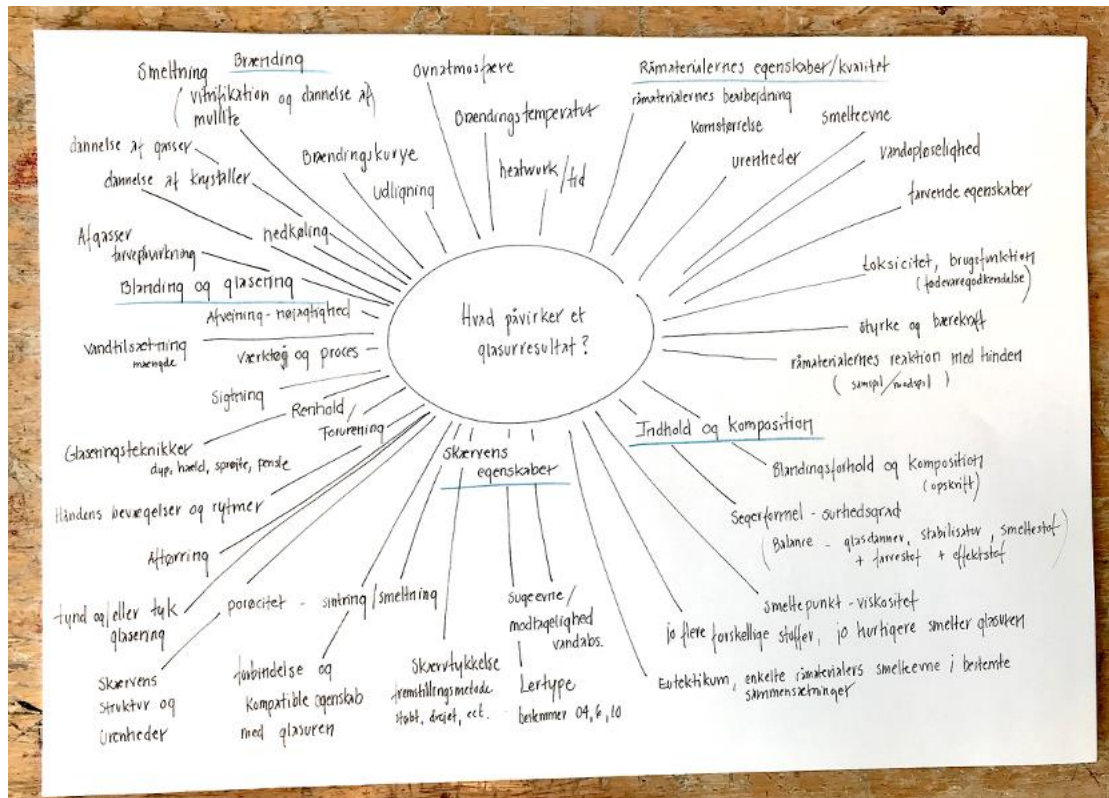 Hvad påvirker et
glasurresultat?
Brænding
Smeltning
(vitrifikation og dannelse af
mullite
dannelse af gasser
dannelse af krystaller
Brændingskurve
udligning
nedkøling
Afgasser
farvepåvirkning
Ovnatmosfære
Brændingstemperatur
heatwork/tid
Råmaterialernes egenskaber/kvalitet
råmaterialernes bearbejdning
Kornstørrelse
urenheder
Smelteevne
Vandopløselighed
farvende egenskaber
toksicitet, brugsfunktion
(fødevaregodkendelse)
styrke og bærekraft
råmaterialernes reaktion med hinden
(samspil/modspil)
Indhold og komposition
Blandingsforhold og komposition
(opskrift)
Segerformel - surhedsgrad
(Balance - glasdanner, stabilisator, smeltestof)
+ farvestof + effektstof
Smeltepunkt - viskositet
jo flere forskellige stoffer, jo hurtigere smelter glasuren
Eutektikum, enkelte råmaterialers smelteevne i bestemte
sammensætninger
Skærvens
egenskaber
Sugeevne/
modtagelighed
vandabs.
Lertype
bestemmer 04, 6, 10
Skærvtykkelse
fremstillingsmetode
støbt, drejet, ect.
porøcitet - sintring/smeltning
forbindelse og
kompatible egenskab
med glasuren
Skærvens
struktur og
urenheder
Blanding og glasering
Afvejning - nøjagtighed
Vandtilsætning
mængde
værktøj og proces
Sigtning
Renhold/
Forurening
Glaseringsteknikker
dyp, hæld, sprøjte, pensle
Håndens bevægelser og rytmer
Aftørring
tynd og/eller tyk
glasering